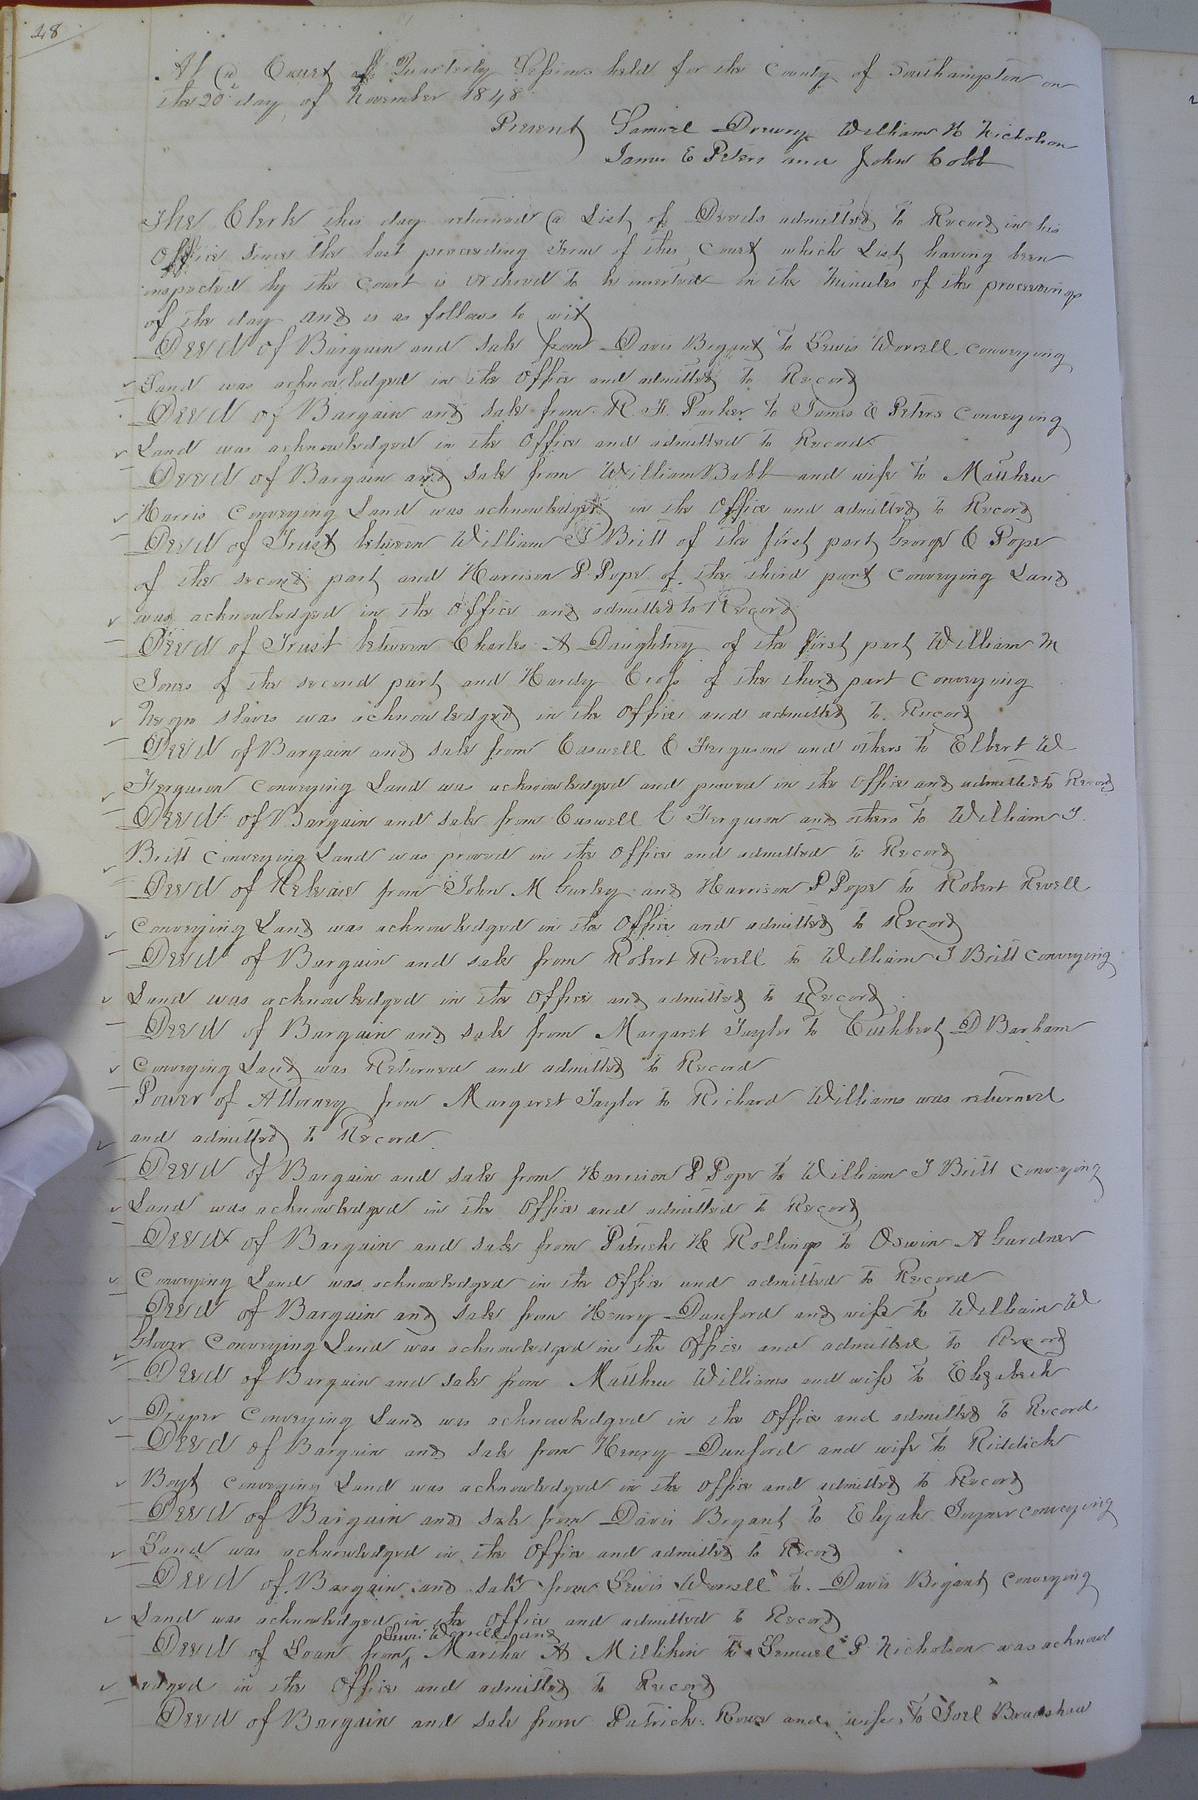 28
At a Court of Quarterly Sessions held for the County of Southampton on
the 20th day of November 1848
Present Samuel Drewry William H Nicholson
James E Peters and John Cobb
The Clerk this day returned a List of Deeds admitted to Record in his
Office since the last preceeding Term of this Court which List having been
inspected by the Court is ordered to be inserted in the Minutes of the proceedings
of the day and is as follows to wit
Deed of Bargain and Sale from Davis Bryant to Lewis Worrell conveying
Land was acknowledged in the Office and admitted to Record
Deed of Bargain and Sale from R. H. Parker to James E Peters conveying
Land was acknowledged in the Office and admitted to Record
Deed of Bargain and Sale from William Babb and wife to Matthew
Harris Conveying Land was acknowledged in the Office and admitted to Record
Deed of Trust between William J Britt of the first part George C Pope
of the second part and Harrison P Pope of the third part Conveying Land
was acknowledged in the Office and admitted to Record
Deed of Trust between Charles A Daughtrey of the first part William M
Jones of the second part and Hardy Crofs of the third part Conveying
Negro Slaves was acknowledged in the Office and admitted to Record
Deed of Bargain and Sale from Caswell C Ferguson and others to Elbert W
Ferguson Conveying Land was acknowledged and proved in the Office and admitted to Record
Deed of Bargain and Sale from Caswell C Ferguson and others to William J.
Britt Conveying Land was proved in the Office and admitted to Record
Deed of Release from John M Gurley and Harrison P Pope to Robert Revell
Conveying Land was acknowledged in the Office and admitted to Record
Deed of Bargain and Sale from Robert Revell to William J Britt conveying
Land was acknowledged in the Office and admitted to Record
Deed of Bargain and Sale from Margaret Taylor to Cuthbert D Barham
Conveying Land was Returned and admitted to Record
Power of Attorney from Margaret Taylor to Richard Williams was returned
and admitted to Record
Deed of Bargain and Sale from Harrison P Pope to William J Britt Conveying
Land was acknowledged in the Office and admitted to Record
Deed of Bargain and Sale from Patrick H Rollings to Oswin A Gardner
Conveying Land was acknowledged in the Office and admitted to Record
Deed of Bargain and Sale from Henry Dunford and wife to William W
Glover Conveying Land was acknowledged in the Office and admitted to Record
Deed of Bargain and Sale from Matthew Williams and wife to Elizabeth
Draper Conveying Land was acknowledged in the Office and admitted to Record
Deed of Bargain and Sale from Henry Dunford and wife to Riddick
Boyt conveying Land was acknowledged in the Office and admitted to Record
Deed of Bargain and Sale from Davis Bryant to Elijah Joyner conveying
Land was acknowledged in the Office and admitted to Record
Deed of Bargain and Sale from Lewis Worrell to Davis Bryant Conveying
Land was acknowledged in the Office and admitted to Record
Lewis Worrell and
Deed of Loan from ^ Martha A Millikin to Samuel P Nicholson was acknowl
edged in the Office and admitted to Record
Deed of Bargain and Sale from Patrick Rowe and wife to Joel Bradshaw